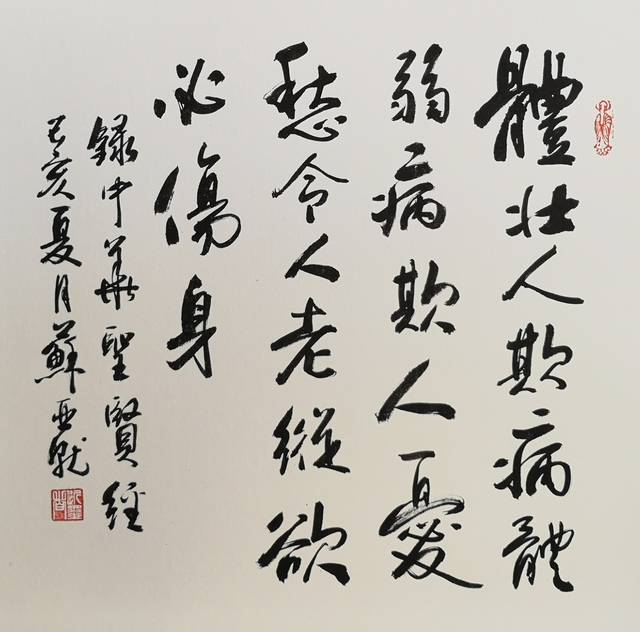 體壯人欺病體
弱病欺人憂
愁令人老縱欲
必傷身
錄中華聖賢經
己亥夏月蘇亚